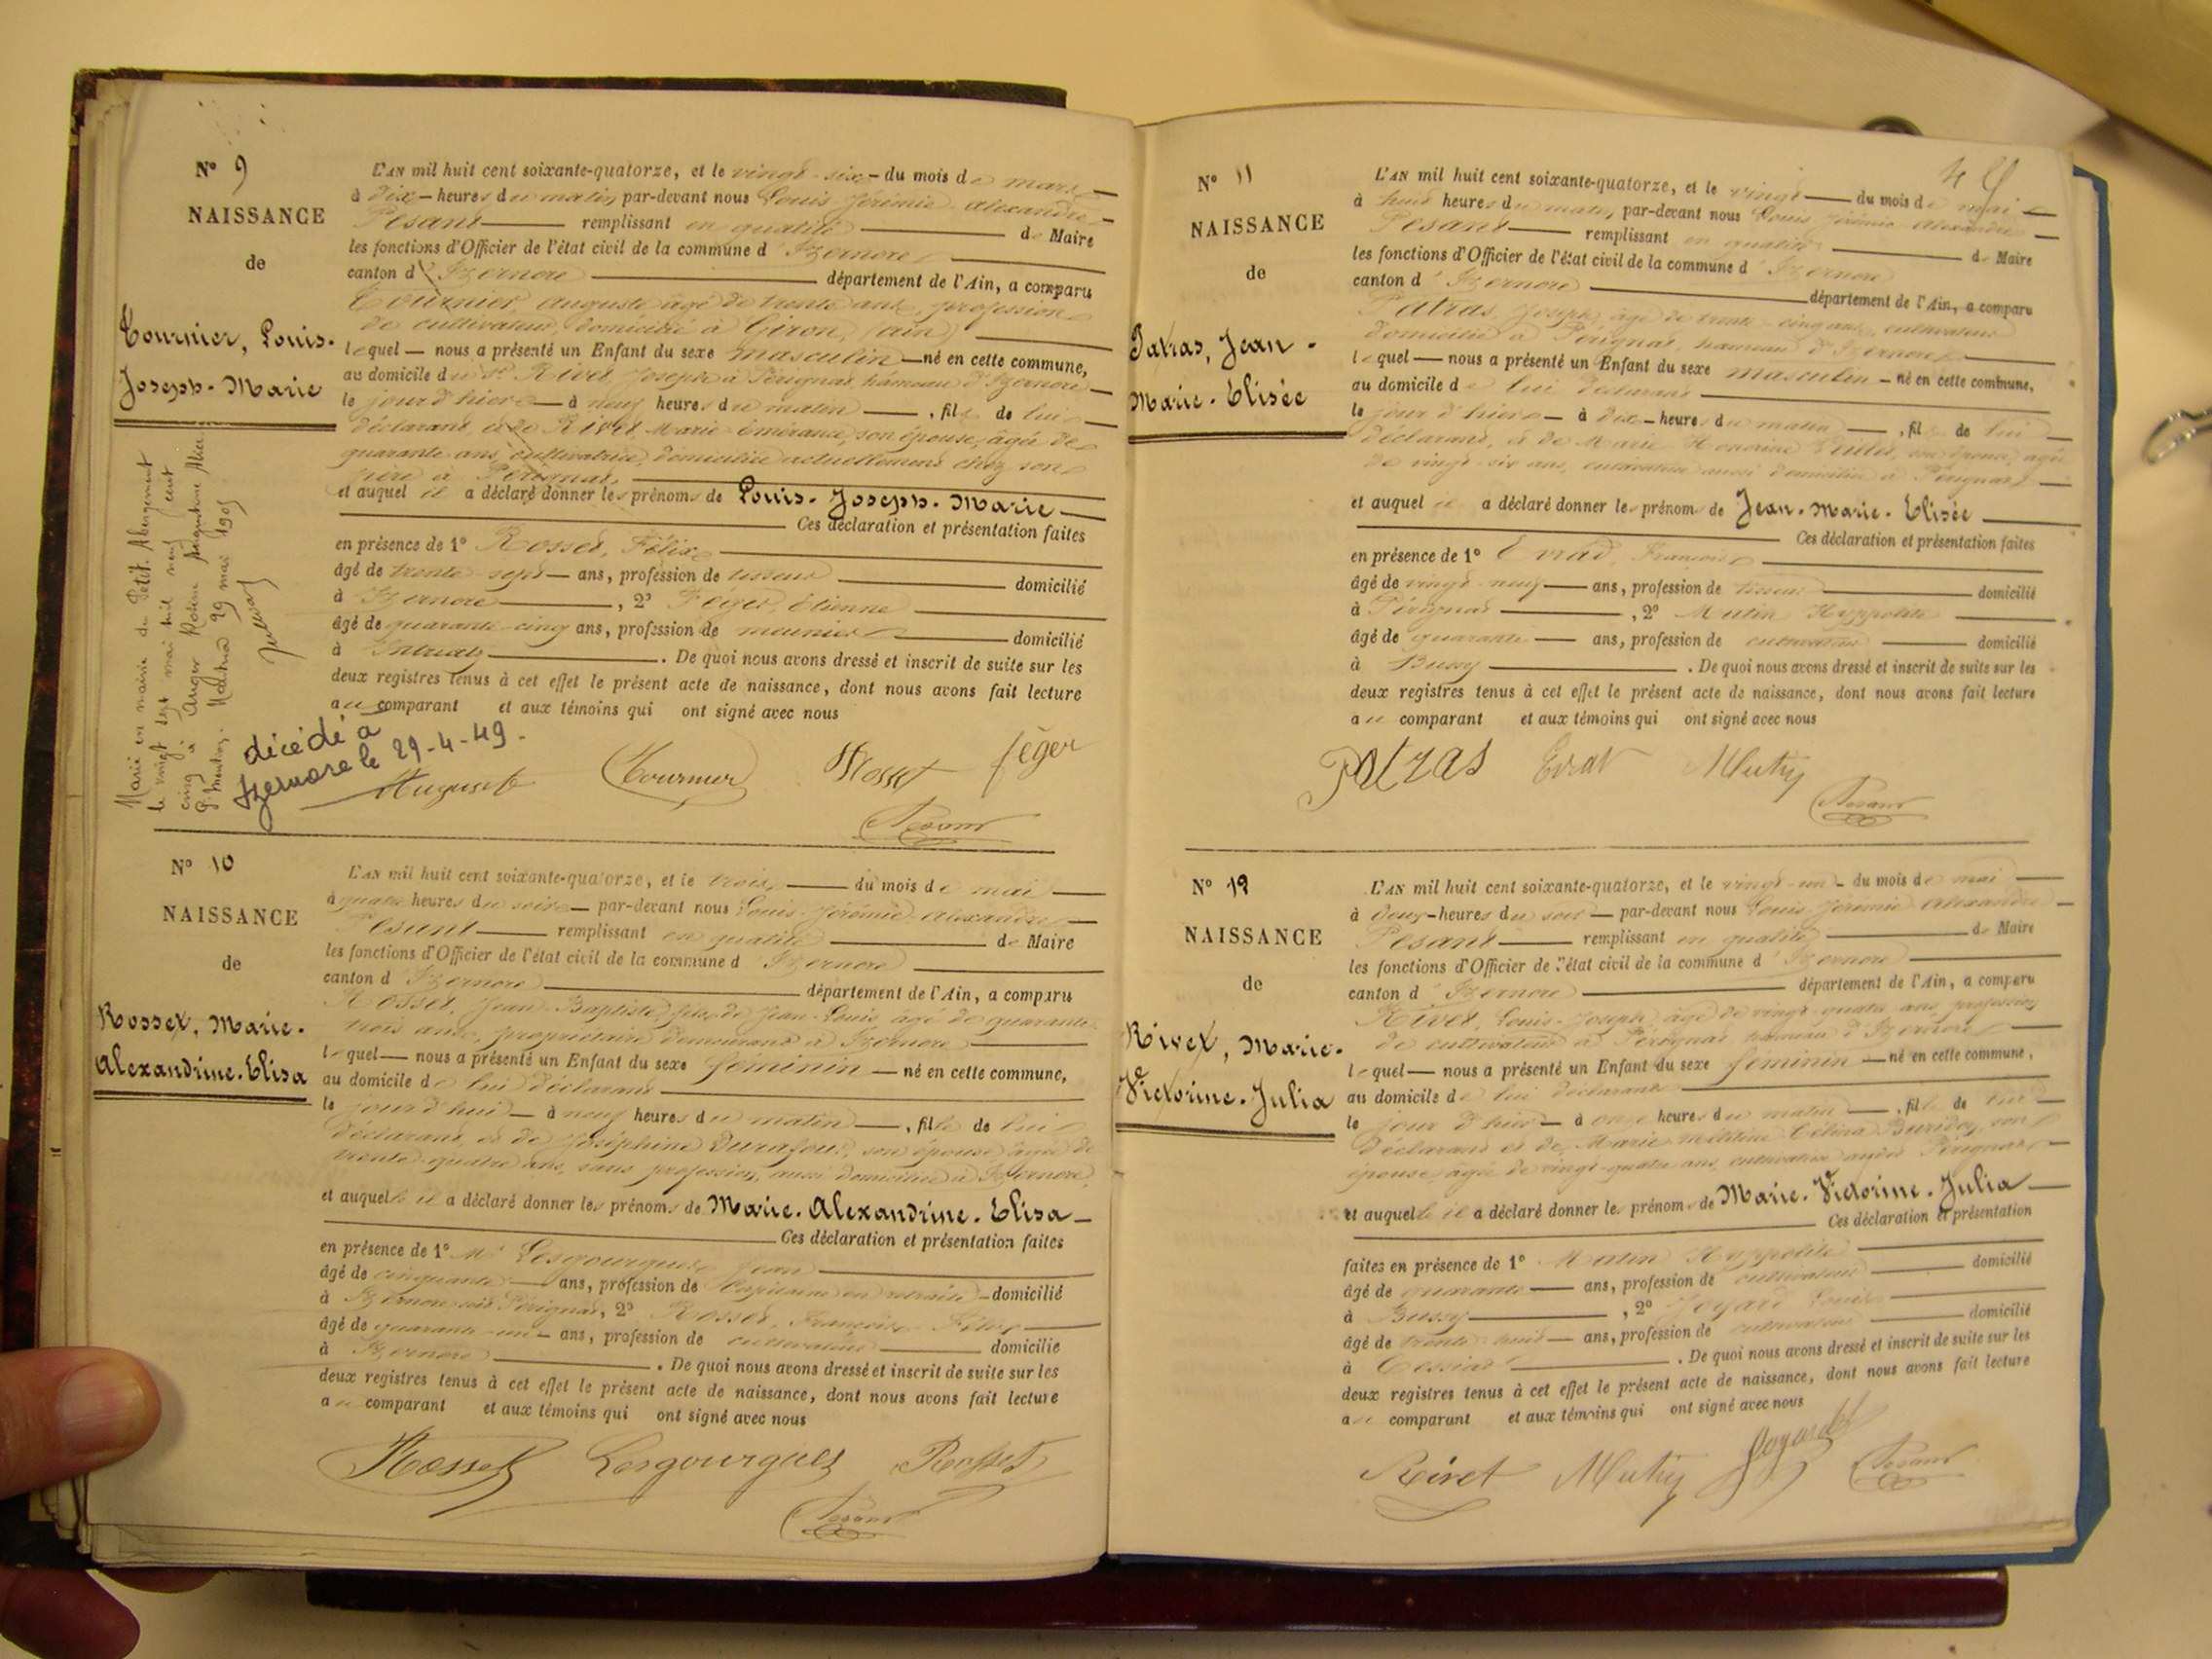 N° 9
NAISSANCE
de
Tournier, Louis-
Joseph-Marie
Marié en mairie de Petit Abergement
le vingt sept mai mil neuf cent
cinq à Auger Rosine Augustine Alice
Mention 29 mai 1905
décédé à
Izernore le 29-4-49-
L'AN mil huit cent soixante-quatorze, et le vingt-six - du mois de mars
à dix - heures du matin, par-devant nous Louis Jérémie Alexandre
Pesant remplissant en qualité de Maire
les fonctions d'Officier de l'état civil de la commune d'Izernore
canton d'Izernore département de l'Ain, a comparu
Tournier, Auguste âgé de trente ans, profession
de cultivateur, domicilié à Giron, (ain)
lequel — nous a présenté un Enfant du sexe masculin — né en cette commune,
au domicile du Sr Rivet Joseph à Pérignat hameau d'Izernore
le jour d'hier — à neuf heures du matin —, fils de lui
déclarant, et de Rivet Marie Emérance, son épouse, âgée de
quarante ans, cultivatrice, domiciliée actuellement chez son
père à Pérignat
et auquel il a déclaré donner les prénoms de Louis-Joseph-Marie
Ces déclaration et présentation faites
en présence de 1° Rosset, Félix
âgé de trente-sept — ans, profession de tisseur domicilié
à Izernore, 2° Féger, Etienne
âgé de quarante-cinq ans, profession de meunier domicilié
à Intriat. De quoi nous avons dressé et inscrit de suite sur les
deux registres tenus à cet effet le présent acte de naissance, dont nous avons fait lecture
au comparant et aux témoins qui ont signé avec nous
Auguste Tournier Rosset féger
Pesant
N° 10
NAISSANCE
de
Rosset, Marie-
Alexandrine-Elisa
L'AN mil huit cent soixante-quatorze, et le trois, — du mois de mai
à quatre heures du soir — par-devant nous Louis Jérémie Alexandre
Pesant remplissant en qualité de Maire
les fonctions d'Officier de l'état civil de la commune d'Izernore
canton d'Izernore département de l'Ain, a comparu
Rosset, Jean Baptiste, fils de Jean-Louis âgé de quarante-
trois ans, propriétaire demeurant à Izernore
lequel — nous a présenté un Enfant du sexe féminin — né en cette commune,
au domicile de lui déclarant
le jour d'hui — à neuf heures du matin —, fille de lui
déclarant, et de Joséphine Durafour, son épouse, âgée de
trente-quatre ans, sans profession, aussi domiciliée à Izernore,
et auquel le il a déclaré donner les prénoms de Marie-Alexandrine-Elisa
Ces déclaration et présentation faites
en présence de 1° Mr Lesgourgues Jean
âgé de cinquante — ans, profession de Capitaine en retraite - domicilié
à Izernore Pérignat, 2° Rosset, François
âgé de quarante-un — ans, profession de cultivateur domicilié
à Izernore. De quoi nous avons dressé et inscrit de suite sur les
deux registres tenus à cet effet le présent acte de naissance, dont nous avons fait lecture
au comparant et aux témoins qui ont signé avec nous
Rosset Lesgourgues Rosset
Pesant
N° 11
NAISSANCE
de
Patras, Jean-
Marie-Elisée
L'AN mil huit cent soixante-quatorze, et le vingt — du mois de mai
à huit heures du matin, par-devant nous Louis Jérémie Alexandre
Pesant remplissant en qualité de Maire
les fonctions d'Officier de l'état civil de la commune d'Izernore
canton d'Izernore département de l'Ain, a comparu
Patras, Joseph, âgé de trente-cinq ans, cultivateur
domicilié à Pérignat, hameau d'Izernore
lequel — nous a présenté un Enfant du sexe masculin - né en cette commune,
au domicile de lui déclarant
le jour d'hier — à dix - heures du matin —, fils de lui
déclarant, et de Marie, son épouse, âgée
de vingt-six ans, cultivatrice aussi domiciliée à Pérignat
et auquel il a déclaré donner les prénoms de Jean-Marie-Elisée
Ces déclaration et présentation faites
en présence de 1° Evrad, François
âgé de vingt-neuf — ans, profession de tisseur domicilié
à Pérignat, 2° Mutin Hyppolite
âgé de quarante — ans, profession de cultivateur domicilié
à Bussy. De quoi nous avons dressé et inscrit de suite sur les
deux registres tenus à cet effet le présent acte de naissance, dont nous avons fait lecture
au comparant et aux témoins qui ont signé avec nous
Patras Evrat Mutin
Pesant
N° 12
NAISSANCE
de
Rivet, Marie-
Victorine-Julia
L'AN mil huit cent soixante-quatorze, et le vingt-un - du mois de mai
à deux - heures du soir — par-devant nous Louis Jérémie Alexandre
Pesant remplissant en qualité de Maire
les fonctions d'Officier de l'état civil de la commune d'Izernore
canton d'Izernore département de l'Ain, a comparu
Rivet, Louis-Joseph, âgé de vingt-quatre ans, profession
de cultivateur à Pérignat hameau d'Izernore
lequel — nous a présenté un Enfant du sexe féminin — né en cette commune,
au domicile de lui déclarant
le jour d'hier — à onze heures du matin —, fille de lui
déclarant et de Marie Célina, son
épouse, âgée de vingt-quatre ans, cultivatrice Pérignat
et auquel le il a déclaré donner les prénoms de Marie-Victorine-Julia
Ces déclaration et présentation
faites en présence de 1° Mutin Hyppolite
âgé de quarante — ans, profession de cultivateur domicilié
à Bussy, 2° Joyard Louis
âgé de trente-huit — ans, profession de cultivateur domicilié
à Cessiat. De quoi nous avons dressé et inscrit de suite sur les
deux registres tenus à cet effet le présent acte de naissance, dont nous avons fait lecture
au comparant et aux témoins qui ont signé avec nous
Rivet Mutin Joyard
Pesant